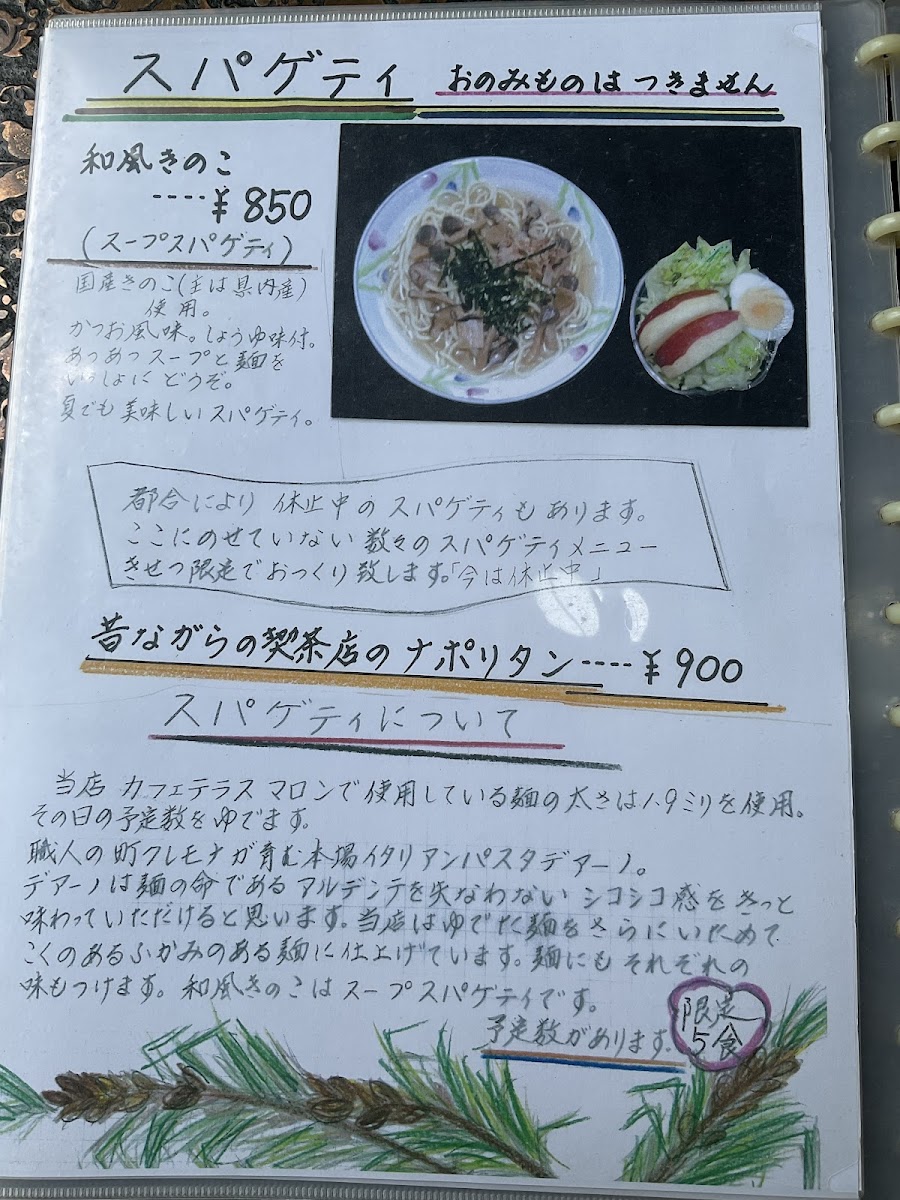 スパゲティ おのみものはつきません
和風きのこ
----¥850
(スープスパゲティ)
国産きのこ(主は県内産)
使用。
かつお風味。しょうゆ味付。
あつあつスープと麺を
いっしょにどうぞ。
夏でも美味しいスパゲティ。
都合により休止中のスパゲティもあります。
ここにのせていない数々のスパゲティメニュー
きせつ限定でおつくり致します。「今は休止中」
昔ながらの喫茶店のナポリタン----¥900
スパゲティについて
当店 カフェテラス マロンで使用している麺の太さは1.9ミリを使用。
その日の予定数をゆでます。
職人の町クレモナが育む本場イタリアンパスタデアーノ。
デアーノは麺の命であるアルデンテを失なわないシコシコ感をきっと
味わっていただけると思います。当店はゆでた麺をさらにいためて
こくのあるふかみのある麺に仕上げています。麺にもそれぞれの
味もつけます。和風きのこはスープスパゲティです。
予定数があります。
限定
5食